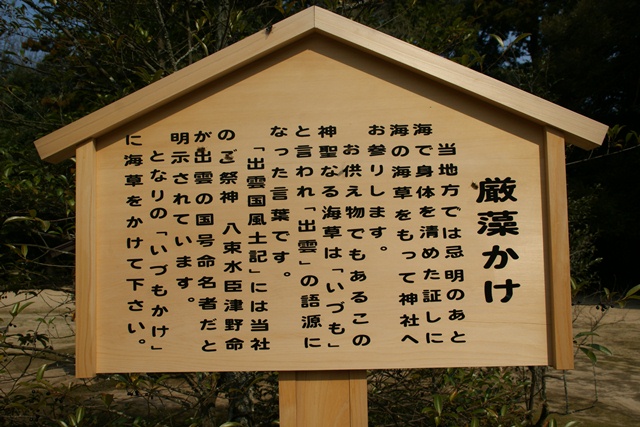 厳藻かけ
当地方では忌明のあと
海で身体を清めた証しに
海の海草をもって神社へ
お参りします。
お供え物でもあるこの
神聖なる海草は「いづも」
と言われ「出雲」の語源に
なった言葉です。
「出雲国風土記」には当社
のご祭神　八束水臣津野命
が出雲の国号命名者だと
明示されています。
となりの「いづもかけ」
に海草をかけて下さい。